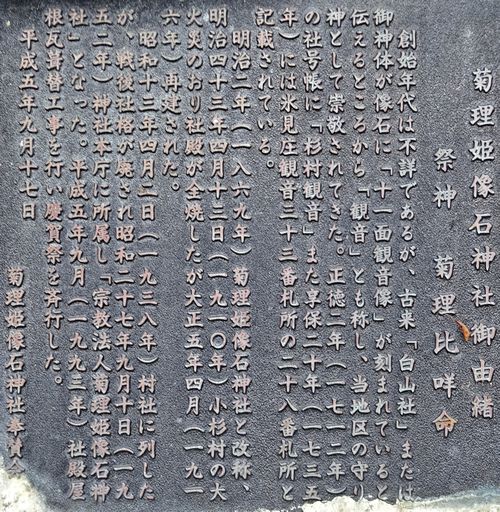 菊理姫像石神社御由緒
祭神　菊理比咩命
創始年代は不詳であるが、古来「白山社」または
御神体が像石に「十一面観音像」が刻まれていると
伝えるところから「観音」とも称し、当地区の守り
神として崇敬されてきた。正徳二年（一七一二年）
の社号帳に「杉村観音」また享保二十年（一七三五
年）には氷見庄観音三十三番札所の二十八番札所と
記載されている。
明治二年（一八六九年）菊理姫像石神社と改称、
明治四十三年四月十三日（一九一〇年）小杉村の大
火災のおり社殿が全焼したが大正五年四月（一九一
六年）再建された。
昭和十三年四月二日（一九三八年）村社に列した
が、戦後社格が廃され昭和二十七年九月十日（一九
五二年）神社本庁に所属し「宗教法人菊理姫像石神
社」となった。平成五年九月（一九九三年）社殿屋
根瓦葺替工事を行い慶賀祭を斉行した。
平成五年九月十七日
菊理姫像石神社奉賛会